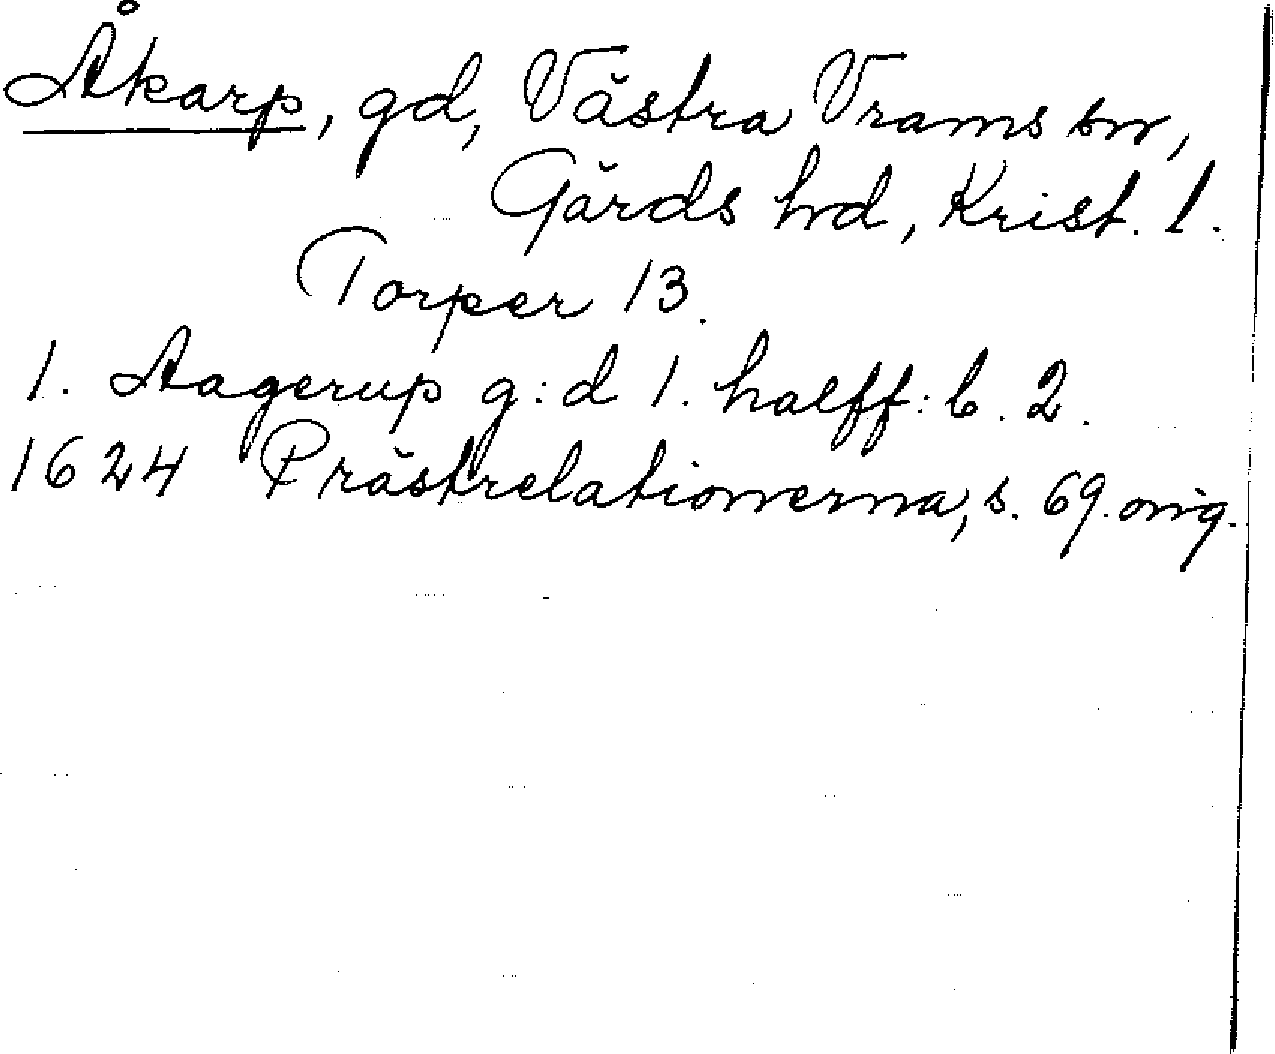 Åkarp, gd, Västra Vrams sn,
Gärds hd, Krist. l.
Torper 13.
1. Aagerup g:d 1. halff:b. 2.
1624 Prästrelationerna, s. 69. orig.